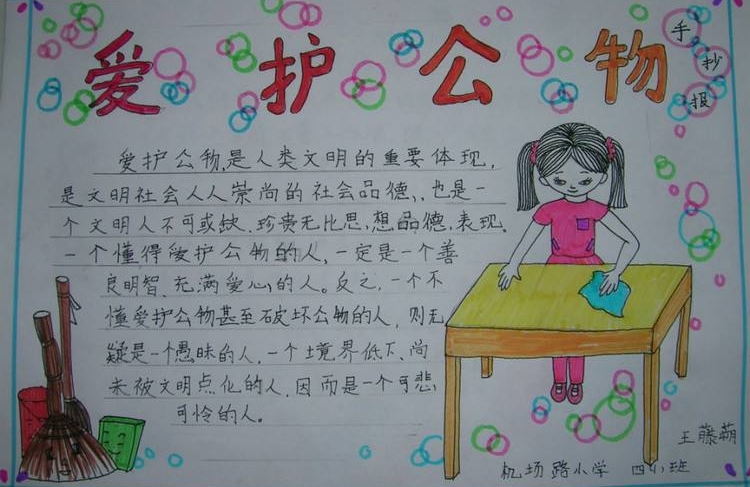 爱护公物
手抄报
爱护公物,是人类文明的重要体现,
是文明社会人人崇尚的社会品德,,也是一
个文明人不可或缺、珍贵无比思,想品德,表现。
一个懂得爱护公物的人,一定是一个善
良明智、充满爱心的人。反之,一个不
懂爱护公物甚至破坏公物的人,则无
疑是一个愚昧的人,一个境界低下、尚
未被文明点化的人,因而是一个可悲
可怜的人。
王藤蒴
机场路小学 四(1)班